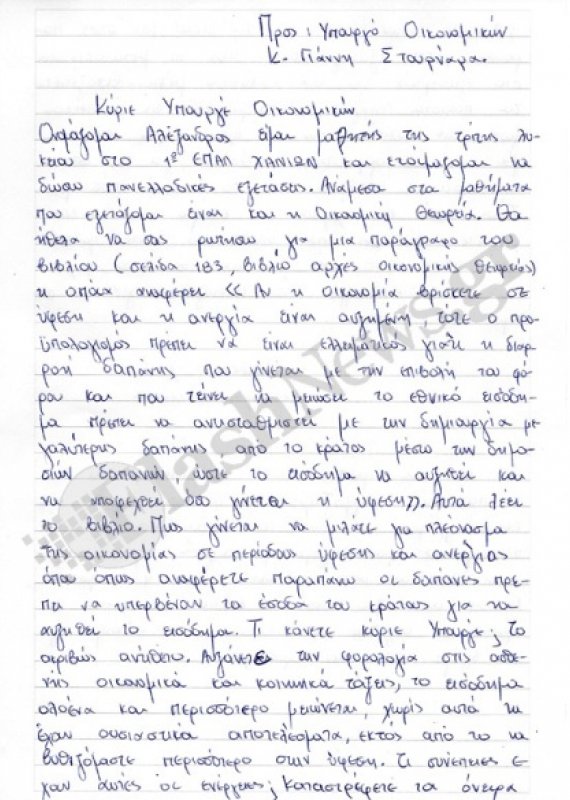 Προς: Υπουργό Οικονομικών
κ. Γιάννη Στουρνάρα.
Κύριε Υπουργέ Οικονομικών
Ονομάζομαι Αλέξανδρος είμαι μαθητής της τρίτης λυ-
κείου στο 1ο ΕΠΑΛ ΧΑΝΙΩΝ και ετοιμάζομαι να
δώσω πανελλαδικές εξετάσεις. Ανάμεσα στα μαθήματα
που εξετάζομαι είναι και η Οικονομική Θεωρία. Θα
ήθελα να σας ρωτήσω για μια παράγραφο του
βιβλίου (σελίδα 183, βιβλίο αρχές οικονομικής θεωρίας)
η οποία αναφέρει << Αν η οικονομία βρίσκετε σε
ύφεση και η ανεργία είναι αυξημένη τότε ο προ-
ϋπολογισμός πρέπει να είναι ελλειματικός γιατί η διαρ-
ροή δαπάνης που γίνεται με την επιβολή του φό-
ρου και που τείνει να μειώσει το εθνικό εισόδη-
μα πρέπει να αντισταθμιστεί με την δημιουργία με-
γαλύτερης δαπάνης από το κράτος μέσω των δημο-
σιών δαπανών ώστε το εισόδημα να αυξηθεί και
να υποφευχθεί όσο γίνεται η ύφεση>>. Αυτά λέει
το βιβλίο. Πως γίνεται να μιλάτε για πλεόνασμα
της οικονομίας σε περίοδους ύφεσης και ανεργίας
όπου όπως αναφέρετε παραπάνω οι δαπάνες πρέ-
πει να υπερβέναν τα έσοδα του κράτους για να
αυξηθεί το εισόδημα. Τι κάνετε κύριε Υπουργέ; το
ακριβώς αντίθετο. Αυξάνετε την φορολογία στις ασθε-
νής οικονομικά και κοινωνικά τάξεις, το εισόδημα
ολοένα και περισσότερο μειώνεται, χωρίς αυτά να
έχουν ουσιαστικά αποτελέσματα, εκτός από το να
βυθιζόμαστε περισσότερο στην ύφεση. Τι συνέπειες έ-
χουν αυτές οι ενέργειες; Καταστρέφετε τα όνειρα
flashnews.gr